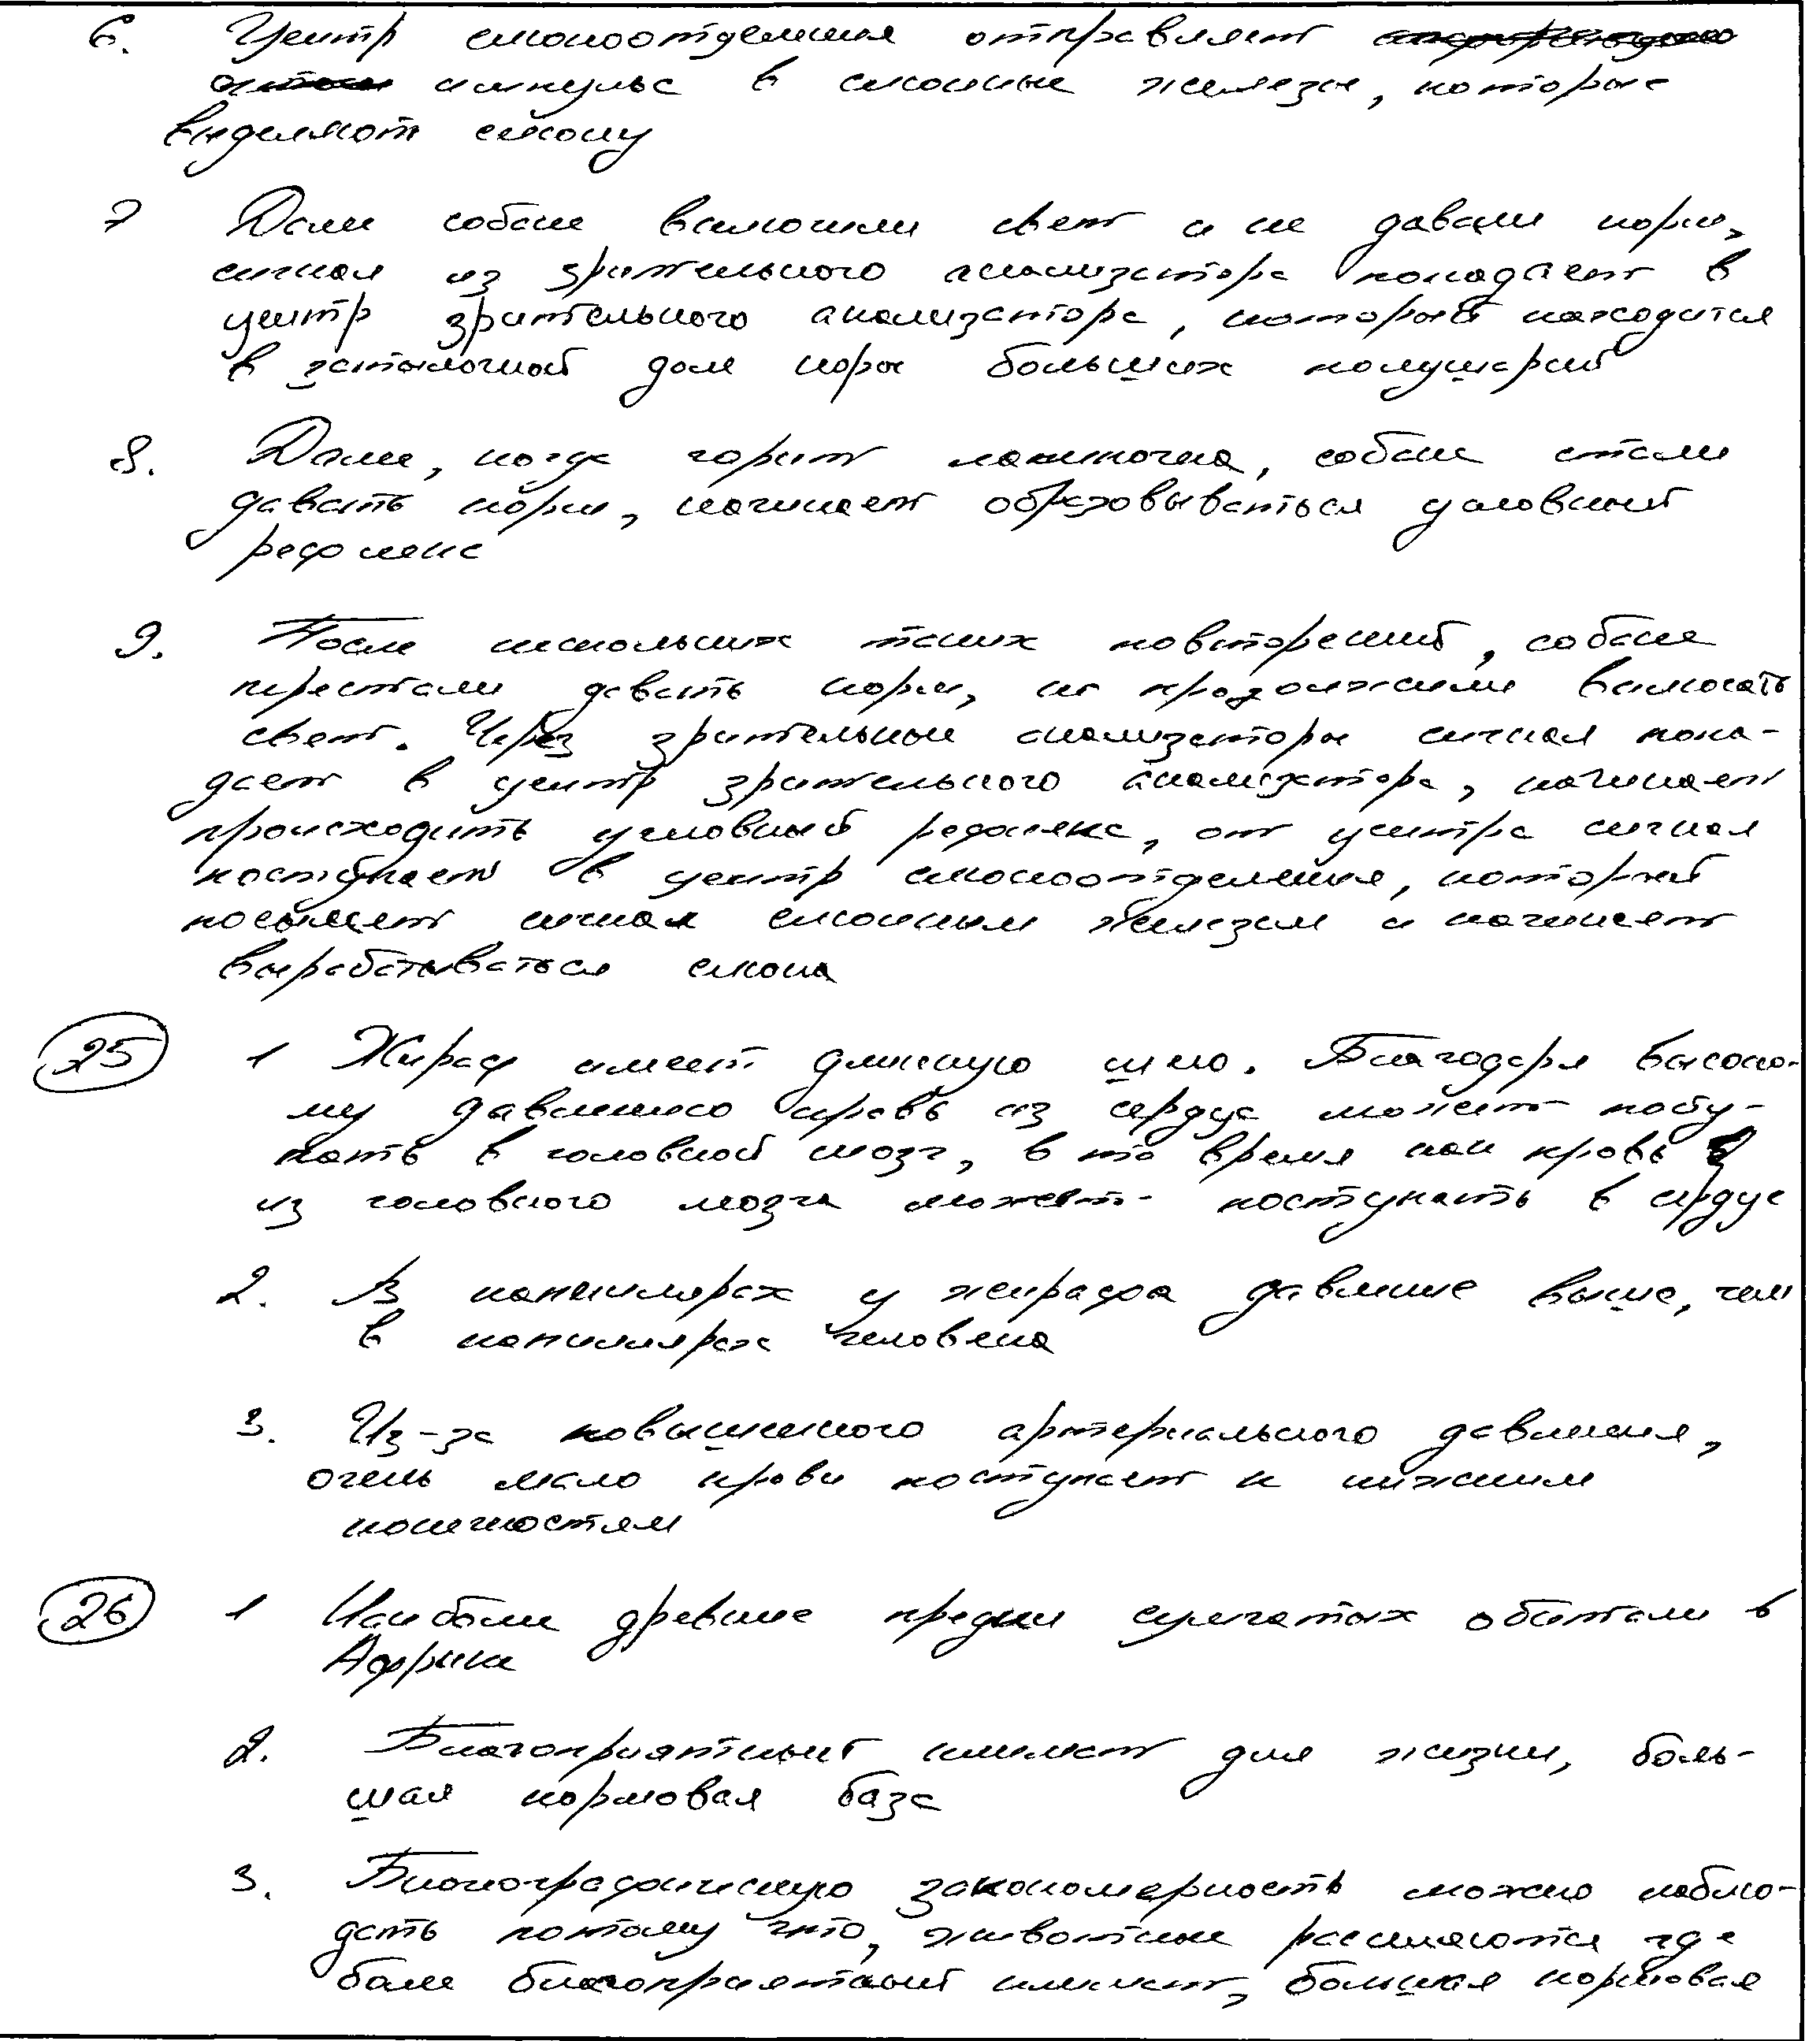 6. Центр слюноотделения отправляет
импульс в слюнные железы, которые
выделяют слюну
7 Далее собаке включили свет и не давали корм,
сигнал из зрительного анализатора попадает в
центр зрительного анализатора, который находится
в затылочной доле коры больших полушарий
8. Далее, когда горит лампочка, собаке стали
давать корм, начинает образовываться условный
рефлекс
9. После нескольких таких повторений, собаке
перестали давать корм, но продолжили включать
свет. Через зрительные анализаторы сигнал попа-
дает в центр зрительного анализатора, начинает
происходить условный рефлекс, от центра сигнал
поступает в центр слюноотделения, который
посылает сигнал слюнным железам и начинает
вырабатываться слюна
25 1 Жираф имеет длинную шею. Благодаря высоко-
му давлению кровь из сердца может посту-
пать в головной мозг, в то время как кровь
из головного мозга может поступать в сердце
2. В капиллярах у жирафа давление выше, чем
в капиллярах человека
3. Из-за повышенного артериального давления,
очень мало крови поступает к нижним
конечностям
26 1 Наиболее древние предки сумчатых обитали в
Африке
2. Благоприятный климат для жизни, боль-
шая кормовая база
3. Биогеографическую закономерность можно наблю-
дать потому что, животные расселяются где
более благоприятный климат, большая кормовая